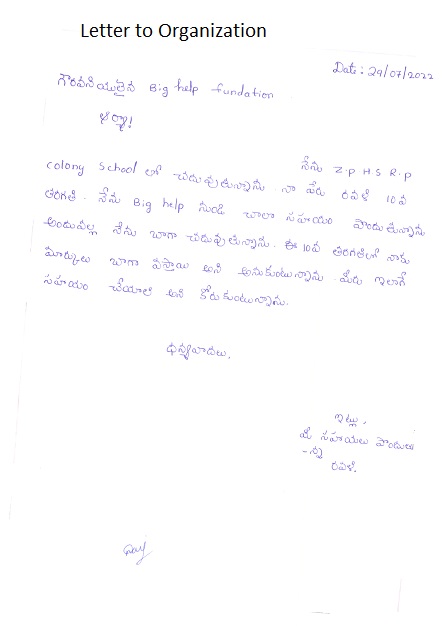 Letter to Organization
Date: 29/07/2022
గౌరవనీయులైన Big help fundation
ఆర్యా!
నేను Z.p H.S R.p
colony School లో చదువుతున్నాను. నా పేరు రవళి 10వ
తరగతి. నేను Big help నుండి చాలా సహాయం పొందుతున్నాను
అందువల్ల నేను బాగా చదువుతున్నాను. ఈ 10వ తరగతిలో నాకు
మార్కులు బాగా వస్తాయి అని అనుకుంటున్నాను. మీరు ఇలాగే
సహయం చేయాలి అని కోరుకుంటున్నాను.
ధన్యవాదలు,
ఇట్లు,
మీ సహాయలు పొందుతు
-న్న
రవళి.